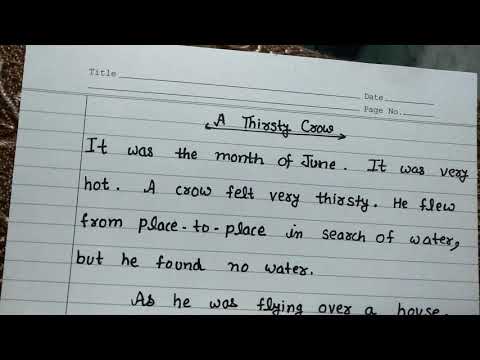 Title
Date
Page No.
A Thirsty Crow
It was the month of June. It was very
hot. A crow felt very thirsty. He flew
from place-to-place in search of water,
but he found no water.
As he was flying over a house,